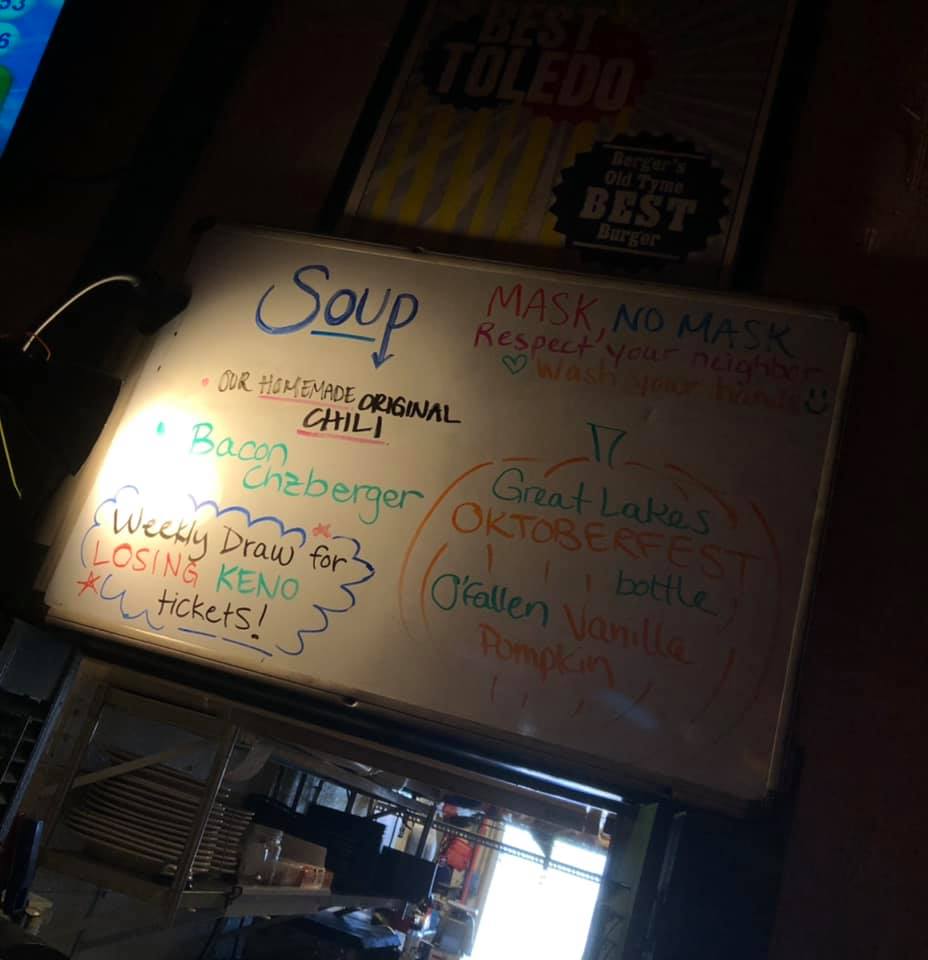 33
6
BEST
TOLEDO
Berger's
Old Tyme
BEST
Burger
Soup
• OUR HOMEMADE ORIGINAL
CHILI
• Bacon
Chzberger
Weekly Draw for
LOSING KENO
tickets!
MASK, NO MASK
Respect your neighbor
Wash your hands
Great Lakes
OKTOBERFEST
bottle
O'fallen Vanilla
Pumpkin